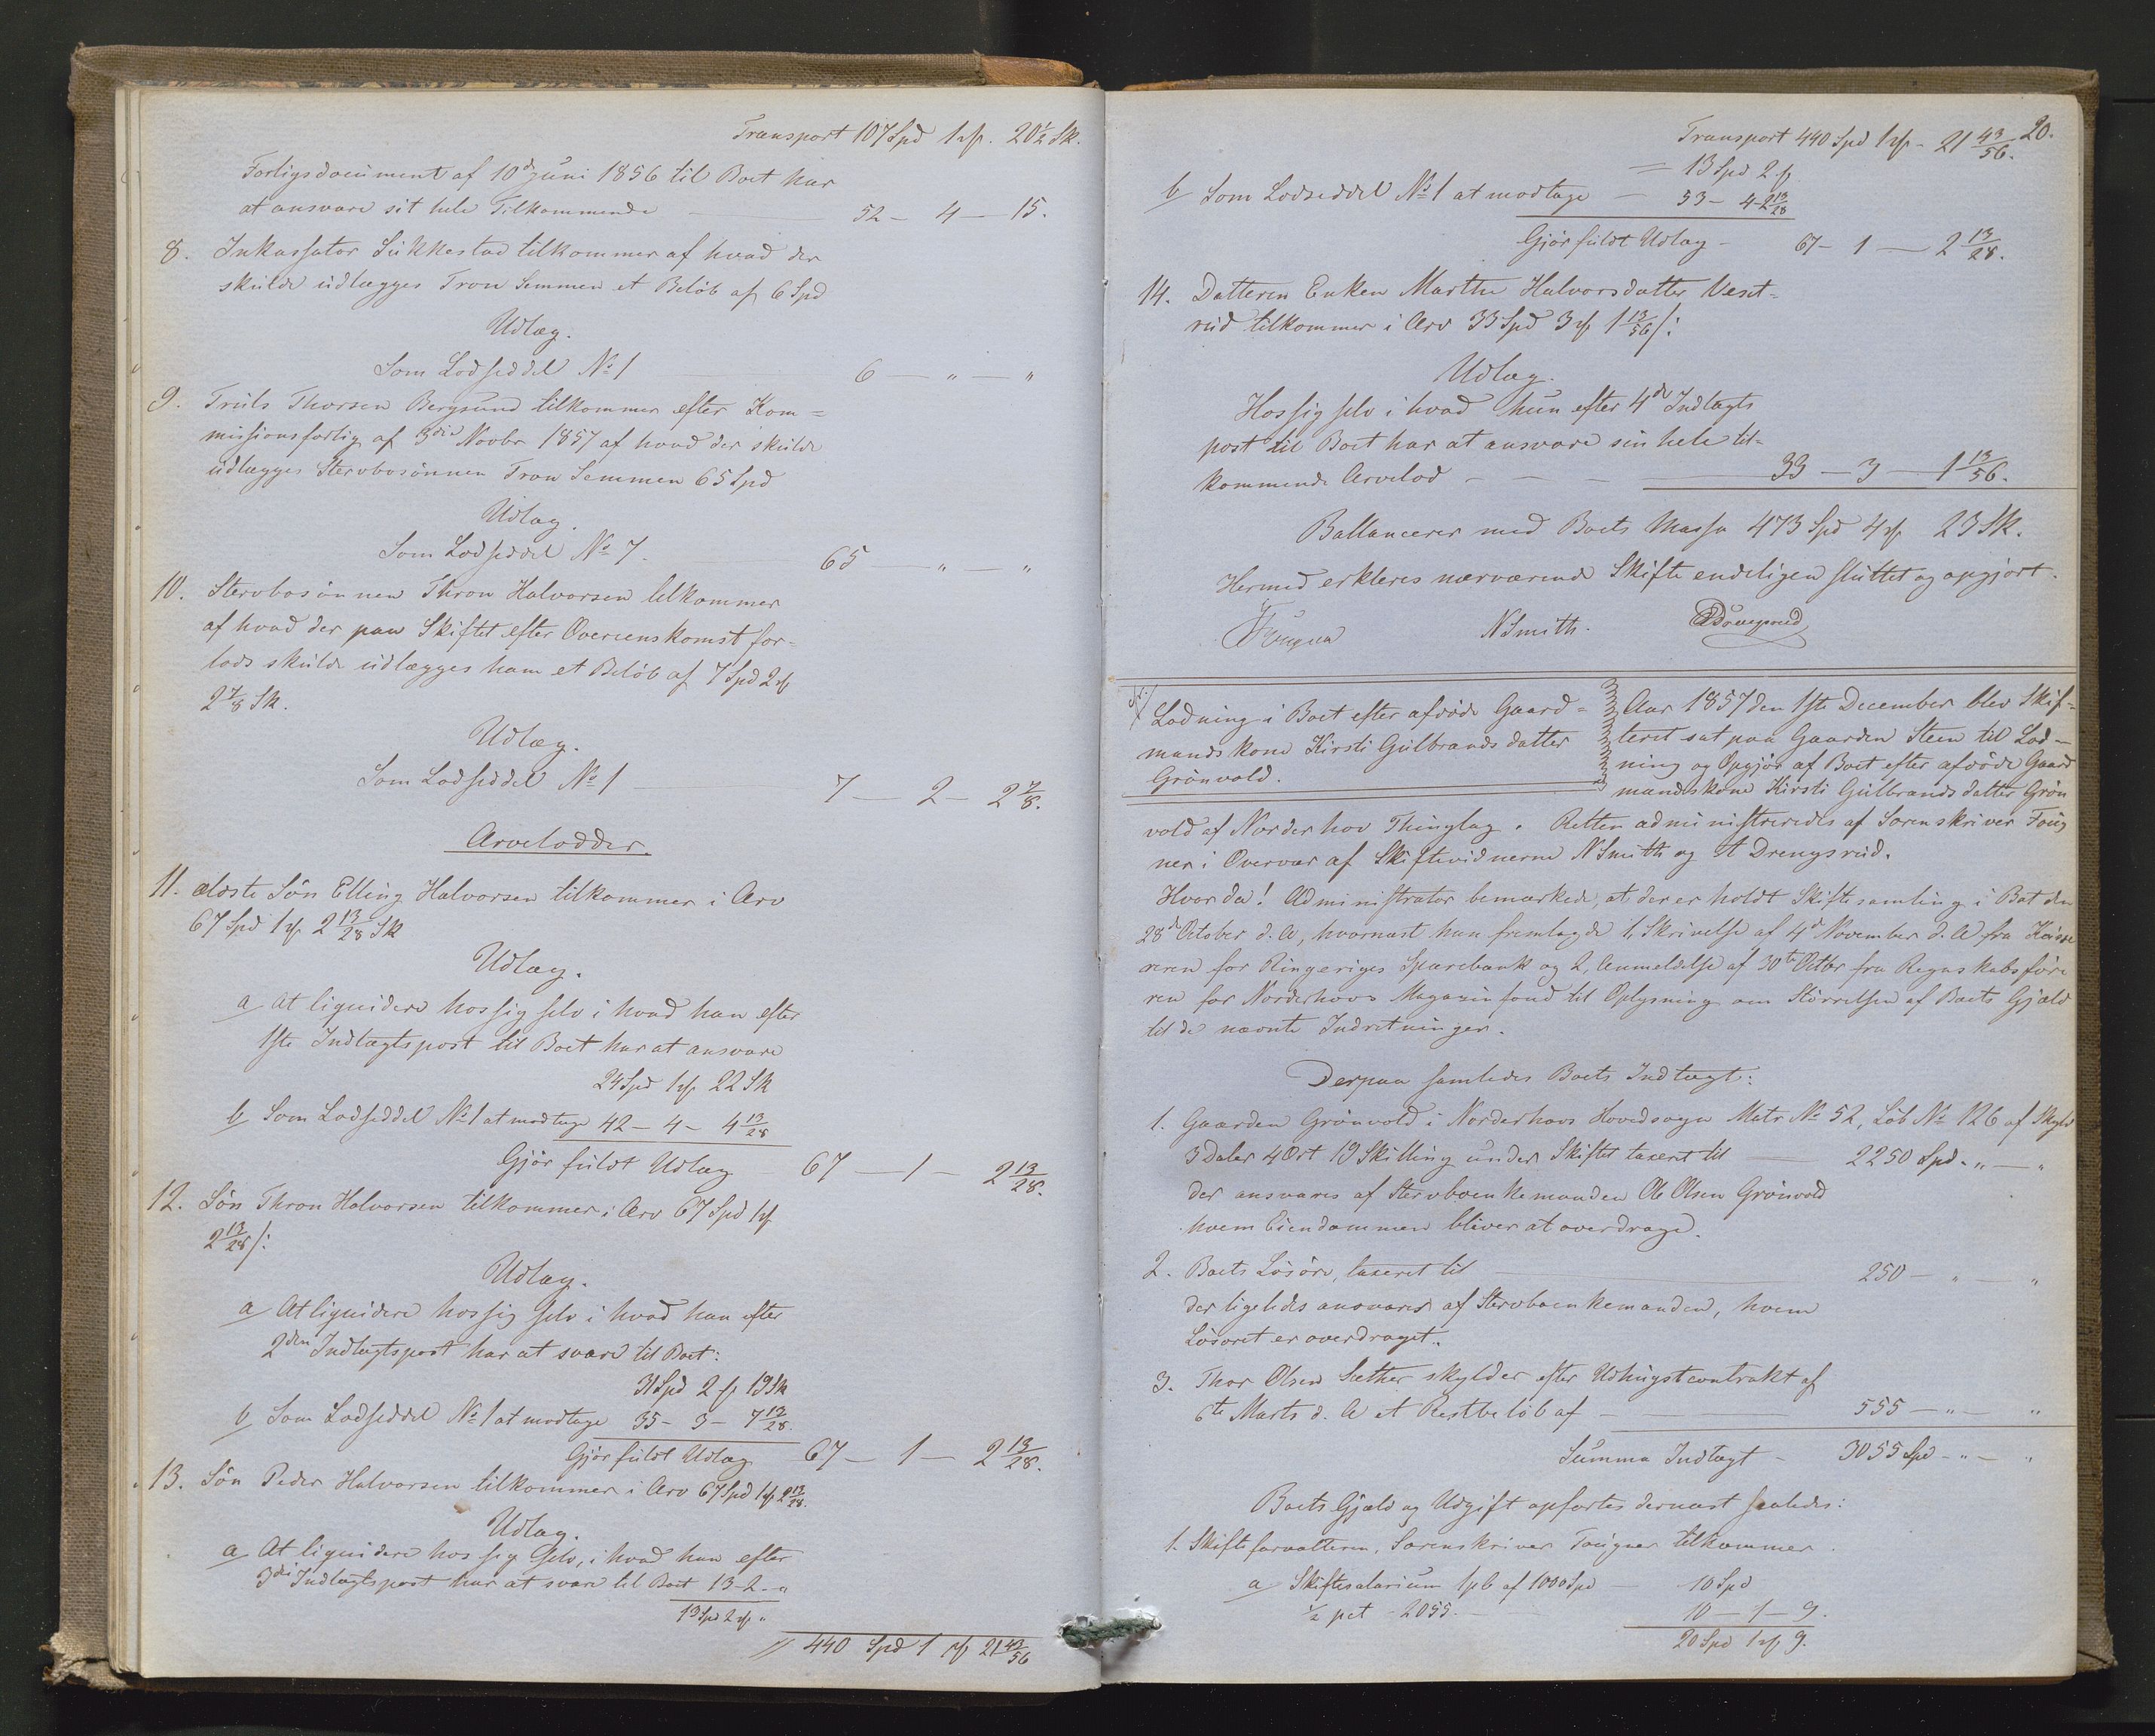 Transport 107 Spd 1 ₰. 20 1/2 Sk.
Forligsdocument af 10de Juni 1856 til Boet har
at ansvare sit hele Tilkommende — 52 — 4 — 15.
8. Inkassator Sukkestad tilkommer af hvad der
skulde udlægges Tron Semmen et Beløb af 6 Spd
Udlæg.
Som Lodseddel No 1 — 6 — " — "
9. Truls Thorsen Bergsund tilkommer efter Kom=
missionsforlig af 3die Novbr 1857 af hvad der skulde
udlægges Stervbosønnen Tron Semmen 65 Spd
Udlæg.
Som Lodseddel No 7. — 65 — " — "
10. Stervbosønnen Thron Halvorsen tilkommer
af hvad der paa Skiftet efter Overeenskomst for=
lods skulde udlægges ham et Beløb af 7 Spd 2 ₰
2 7/8 Sk.
Udlæg.
Som Lodseddel No 1 — 7 — 2 — 2 7/8.
Arvelodder.
11. ældste Søn Elling Halvorsen tilkommer i Arv
67 Spd 1 ₰ 2 13/28 Sk
Udlæg.
a At liquidere hos sig selv i hvad han efter
1ste Indtægtspost til Boet har at ansvare
24 Spd 1 ₰ 22 Sk
b Som Lodseddel No 1 at modtage 42 — 4 — 4 13/28
Gjør fuldt Udlæg 67 — 1 — 2 13/28.
12. Søn Thron Halvorsen tilkommer i Arv 67 Spd 1 ₰
2 13/28 /:
Udlæg.
a At liquidere hos sig selv i hvad han efter
2den Indtægtspost har at svare til Boet:
31 Spd 2 ₰ 19 Sk
b Som Lodseddel No 1 at modtage 35 — 3 — 7 13/28.
Gjør fuldt Udlæg 67 — 1 — 2 13/28.
13. Søn Peder Halvorsen tilkommer i Arv 67 Spd 1 ₰ 2 13/28.
Udlæg.
a At liquidere hos sig selv, i hvad han efter
3die Indtægtspost har at svare til Boet 13 - 2 - "
13 Spd 2 ₰ "
440 Spd 1 ₰ 21 43/56
20.
Transport 440 Spd 1 ₰ - 21 43/56.
= 13 Spd 2 ₰
b Som Lodseddel No 1 at modtage — 53 — 4 - 2 13/28
Gjør fuldt Udlæg — 67 — 1 — 2 13/28.
14. Datteren Enken Marthe Halvorsdatter Veset=
rud tilkommer i Arv 33 Spd 3 ₰ 1 13/56 /:
Udlæg.
Hos sig selv i hvad hun efter 4de Indtægts
post til Boet har at ansvare sin hele til=
kommende Arvelod — 33 — 3 — 1 13/56.
Ballancerer med Boets Massa 473 Spd 4 ₰ 23 Sk.
Hermed erkleres nærværende Skifte endeligen sluttet og opgjort.
Fougner NSmith. ADrengsrud
Lodning i Boet efter afdøde Gaard=
mandskone Kirsti Gulbrandsdatter
Grønvold.
Aar 1857 den 1ste December blev Skif=
teret sat paa Gaarden Steen til Lod=
ning og Opgjør af Boet efter afdøde Gaard
mandskone Kirsti Gulbrandsdatter Grøn
vold af Norderhov Thinglag. Retten administreredes af Sorenskriver Foug
ner i Overvær af Skiftevidnerne NSmith og A Drengsrud.
Hvorda! Administrator bemærkede, at der er holdt Skiftesamling i Boet den
28de October d. A, hvornæst han fremlagde 1, Skrivelse af 4de November d. A fra Kasse
reren for Ringeriges Sparebank og 2, Anmeldelse af 30te Octbr fra Regnskabsføre
ren for Norderhovs Magazinfond til Oplysning om Størrelsen af Boets Gjæld
til de nævnte Indretninger.
Derpaa samledes Boets Indtægt:
1. Gaarden Grønvold i Norderhovs Hovedsogn Matr No 52, Løb No 126 af Skyld
3 Daler 4 Ort 19 Skilling under Skiftet taxeret til — 2250 Spd. " — "
der ansvares af Stervboenkemanden Ole Olsen Grønvold
hvem Eiendommen bliver at overdrage.
2. Boets Løsøre, taxeret til — 250 — " — "
der ligeledes ansvares af Stervboenkemanden, hvem
Løsøret er overdraget.
3. Thor Olsen Sæther skylder efter Udhugstcontrakt af
6te Marts d. A et Restbeløb af — 555 — " — "
Summa Indtægt — 3055 Spd — " — "
Boets Gjæld og Udgift opførtes dernæst saaledes:
1. Skifteforvalteren, Sorenskriver Fougner tilkommer
a Skiftesalarium 1 pCt af 1000 Spd — 10 Spd
1/2 pct - 2055. — 10 — 1 — 9.
20 Spd 1 ₰ 9.